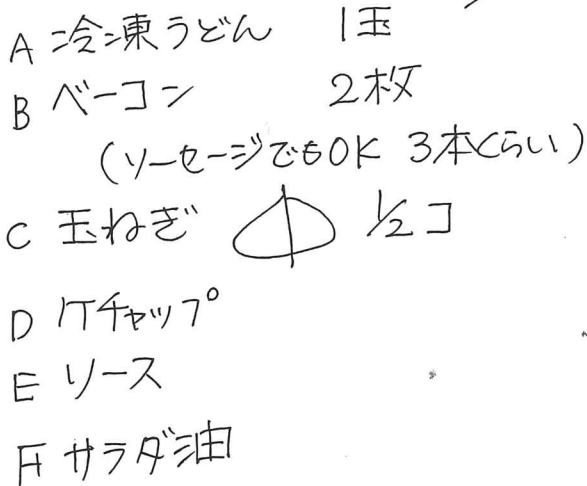 A 冷凍うどん 1玉
B ベーコン 2枚
(ソーセージでもOK 3本くらい)
C 玉ねぎ 1/2コ
D ケチャップ
E ソース
F サラダ油